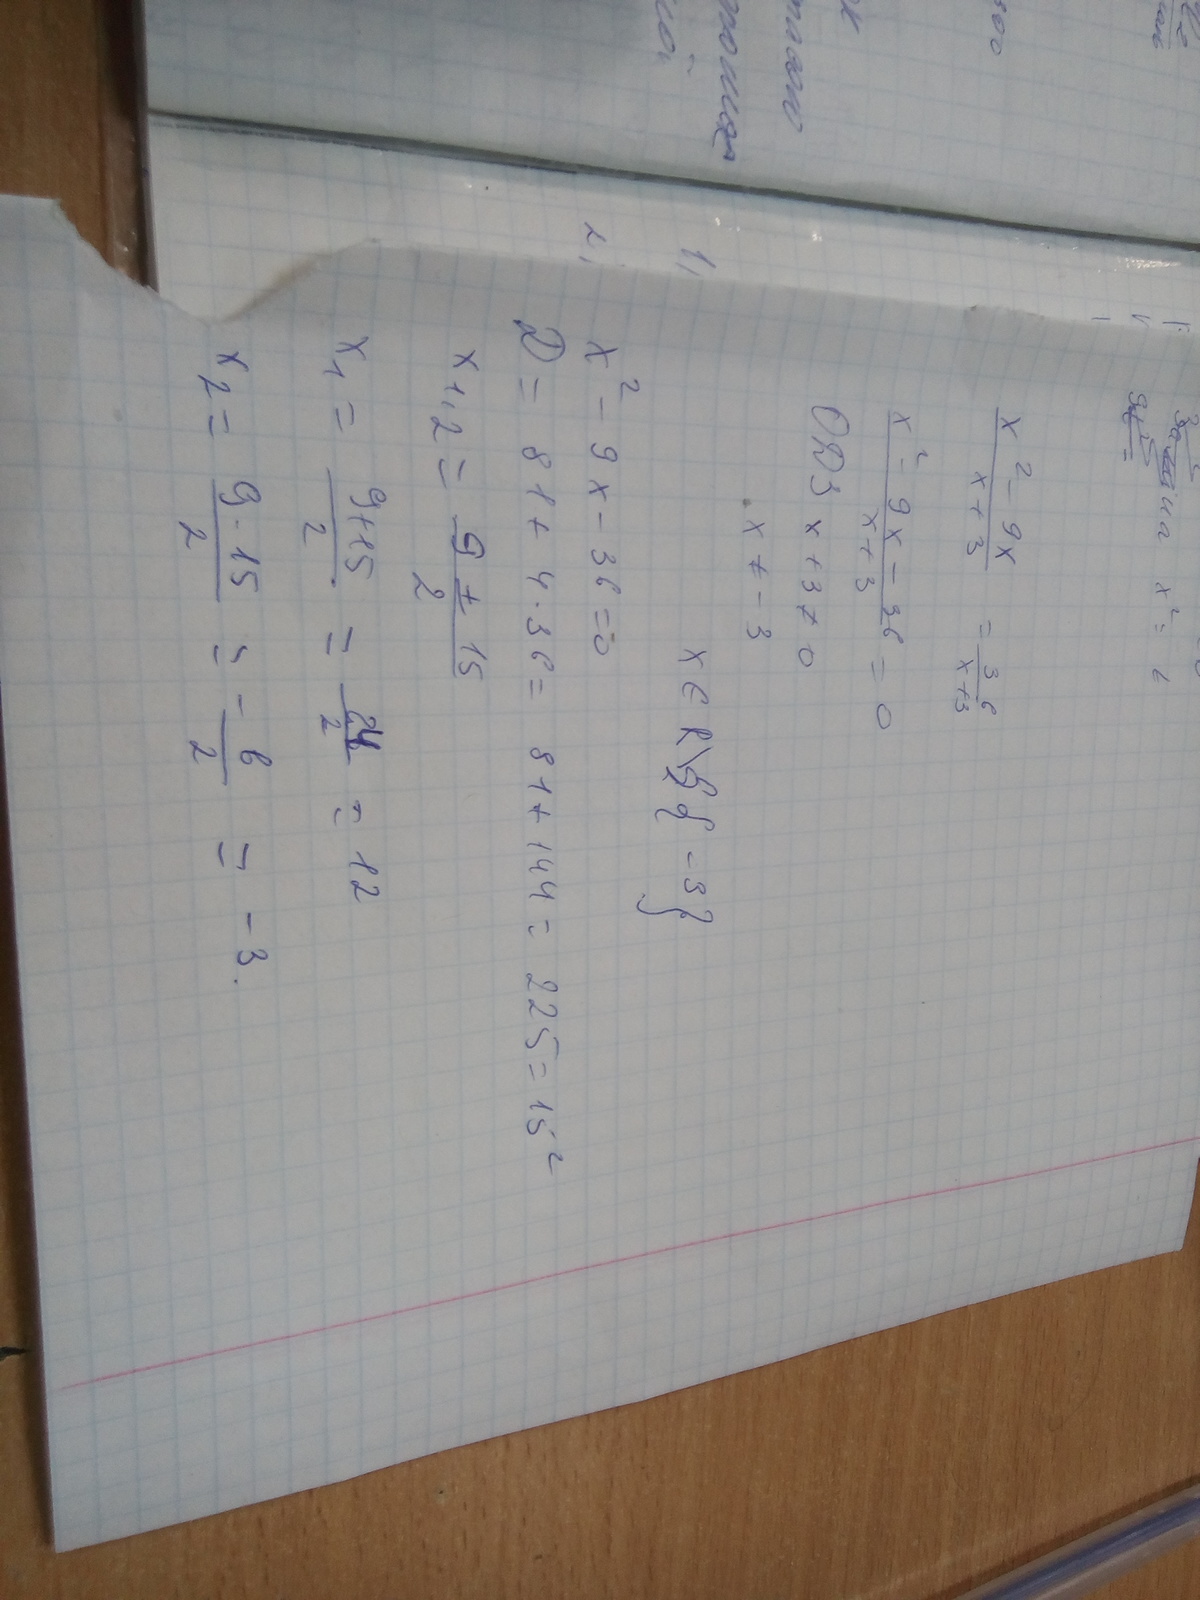 x² = 
x² - 9x / x + 3 = 36 / x+3
x² - 9x - 36 / x + 3 = 0
ОДЗ x + 3 ≠ 0
x ≠ -3
x ∈ R\{-3}
x² - 9x - 36 = 0
D = 81 + 4·36 = 81 + 144 = 225 = 15²
x1,2 = 9 ± 15 / 2
x1 = 9+15 / 2 = 24 / 2 = 12
x2 = 9-15 / 2 = -6 / 2 = -3.